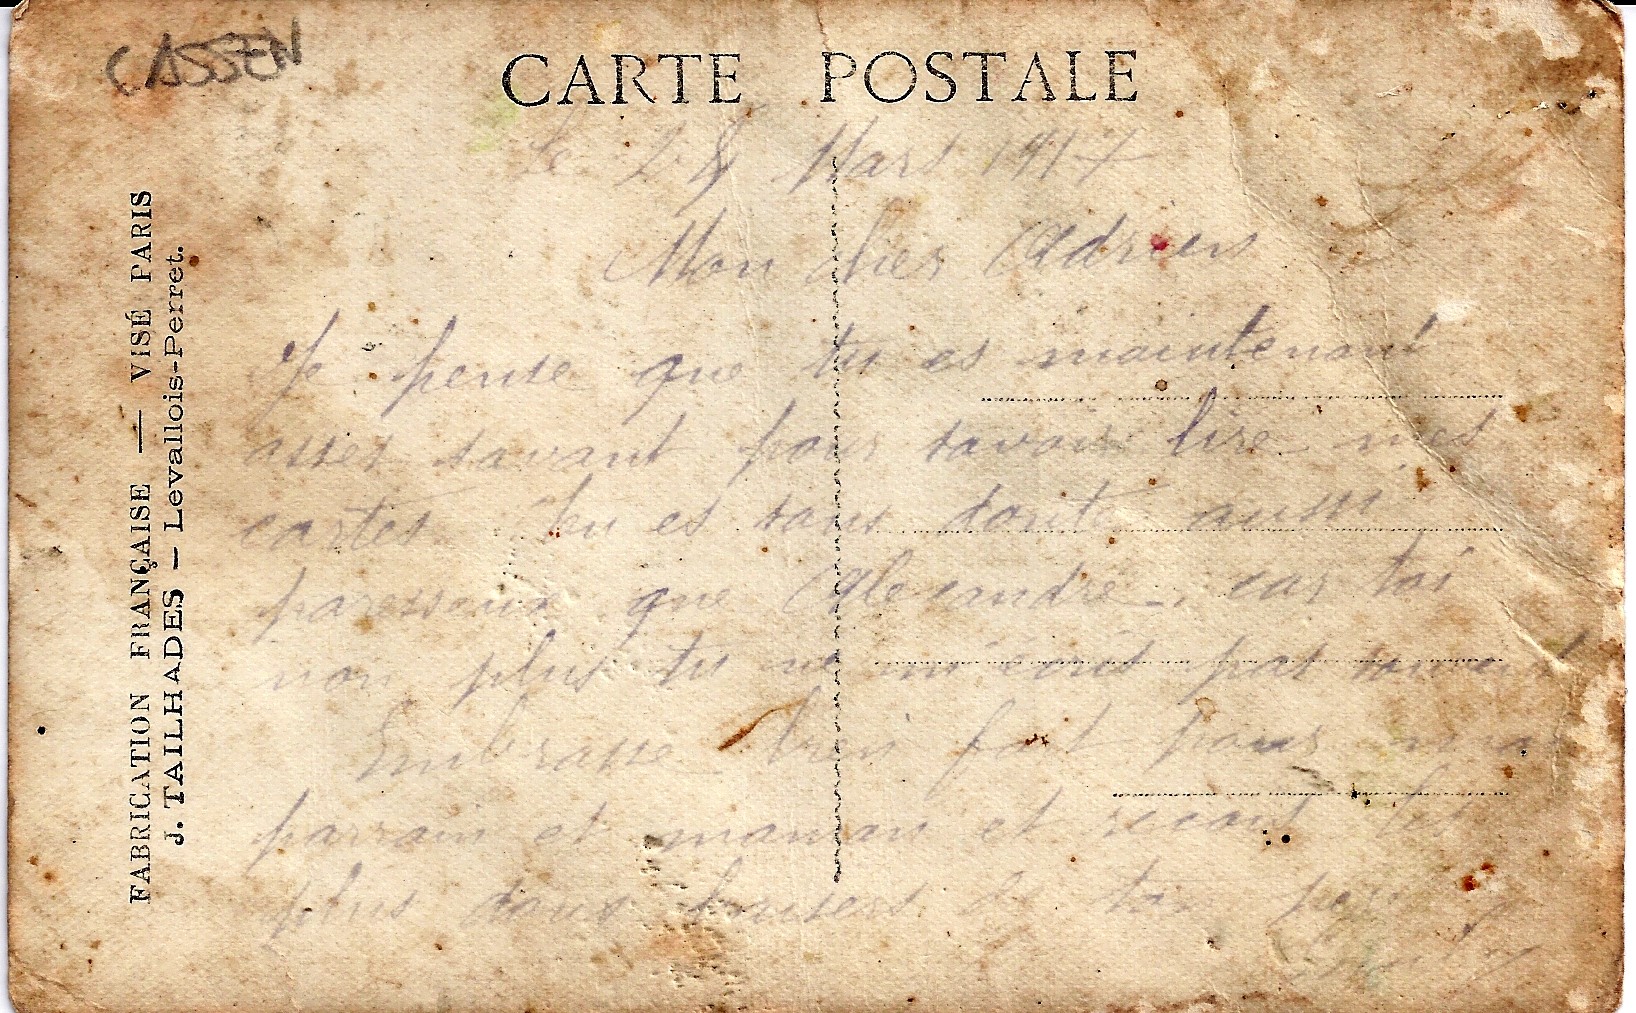 CASSEN
CARTE POSTALE
FABRICATION FRANÇAISE — VISÉ PARIS
J. TAILHADES — Levallois-Perret.
Le 28 Mars 1917
Mon cher Adrien
Je pense que tu es maintenant
assez savant pour savoir lire mes
cartes. Tu es sans doute aussi
paresseux que Alexandre, car toi
non plus tu ne m'écrit pas souvent
Embrasse bien fort pour moi
parrain et maman et recois les
plus doux baisers de ton père